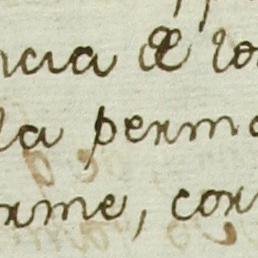 ncia de lo
la perma
rme, cor